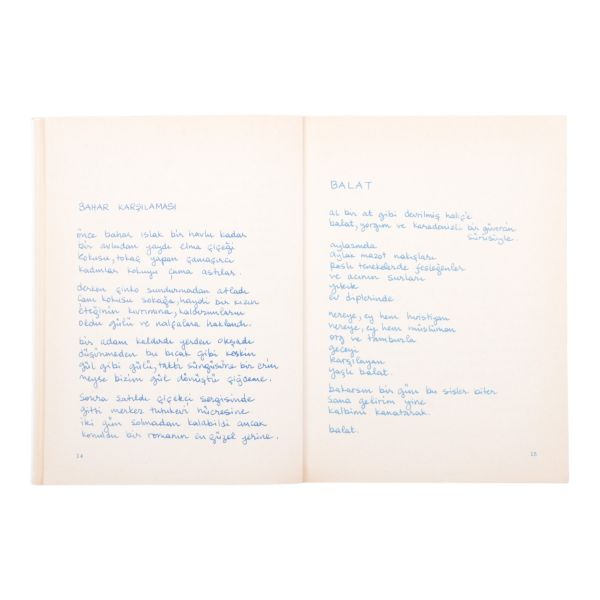 BAHAR KARŞILAMASI
önce bahar ıslak bir havlu kadar
bir avludan yaydı elma çiçeği
kokusu, tokaç yapan çamaşırcı
kadınlar kokuyu çama astılar.
derken çinko sundurmadan atladı
çam kokusu sokağa, haydi bir kızın
eteğinin kıvrımına, kaldırımların
oldu gülü ve nalçalara haklandı.
bir adam kaldırdı yerden okşadı
düşünmeden bu bıçak gibi keskin
gül gibi gülü, taktı süngüsüne bir erin
neyse bizim gül dönüştü çiğdeme.
Sonra satıldı çiçekçi sergisinde
gitti merkez tutukevi hücresine
iki gün solmadan kalabildi ancak
konuldu bir romanın en güzel yerine.
14
BALAT
al bir at gibi devrilmiş haliç'e
balat, yorgun ve karadenizli bir güvercin
sürüsüyle.
aylasında
aylak mazot nakışları
paslı tenekelerde fesleğenler
ve acının surları
yitik
ev diplerinde
nereye, ey hem hıristiyan
nereye, ey hem müslüman
org ve tamburla
geceyi
karşılayan
yaşlı balat.
bakarsın bir gün bu sisler biter
sana gelirim yine
kalbimi kanatarak.
balat.
15